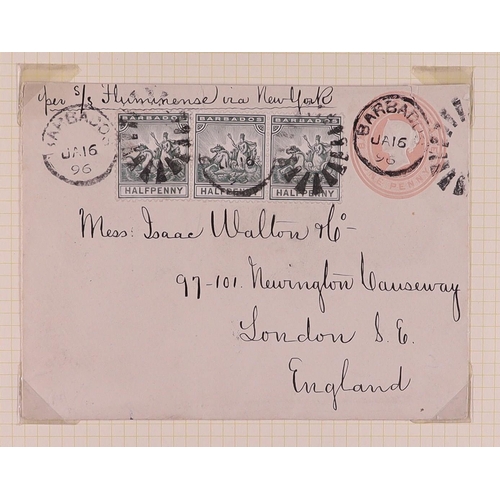 per S/S Fluminense via New York
BARBADOS
JA16
96
BARBADOS
HALFPENNY
BARBADOS
HALFPENNY
BARBADOS
HALFPENNY
BARBADOS
JA16
96
PENNY
Mess: Isaac Walton & Co-
97-101. Newington Causeway
London S.E.
England